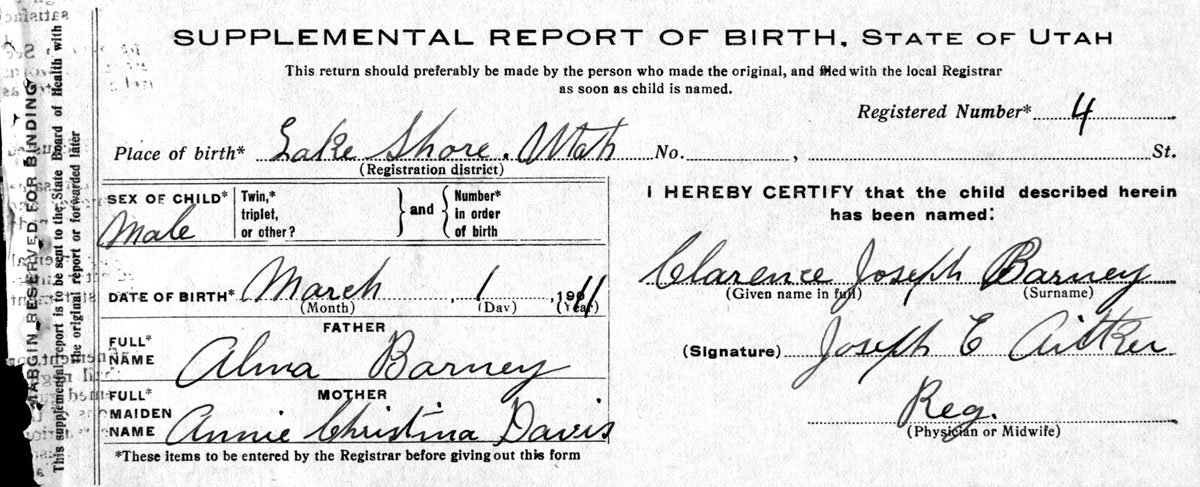 SUPPLEMENTAL REPORT OF BIRTH, STATE OF UTAH
This return should preferably be made by the person who made the original, and filed with the local Registrar
as soon as child is named.
Registered Number* 4
Place of birth* Lake Shore. Utah No. , St.
(Registration district)
SEX OF CHILD* Male
Twin,* triplet, or other? } and { Number* in order of birth
DATE OF BIRTH* March , 1 , 1911
(Month) (Day) (Year)
FATHER
FULL* NAME Alma Barney
MOTHER
FULL* MAIDEN NAME Annie Christina Davis
*These items to be entered by the Registrar before giving out this form
I HEREBY CERTIFY that the child described herein
has been named:
Clarence Joseph Barney
(Given name in full) (Surname)
(Signature) Joseph E Aitken
Reg.
(Physician or Midwife)
MARGIN RESERVED FOR BINDING
This supplemental report is to be sent to the State Board of Health with
the original report or forwarded later